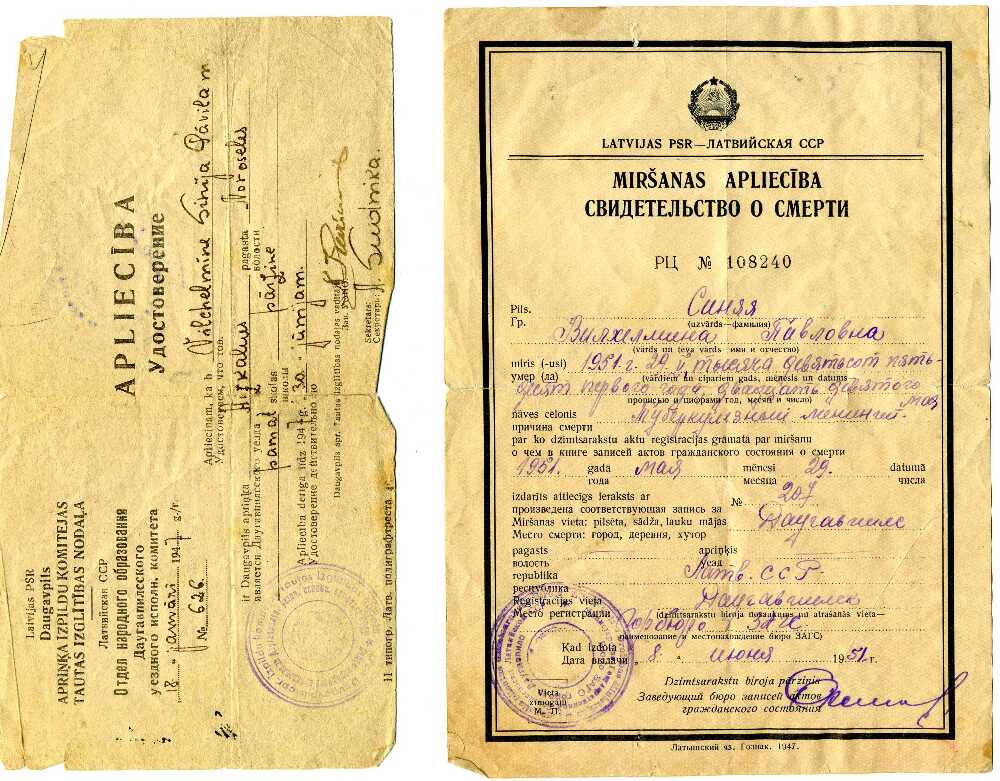 Latvijas PSR
Daugavpils
APRIŅĶA IZPILDU KOMITEJAS
TAUTAS IZGLĪTĪBAS NODAĻA
Латвийская ССР
Отдел народного образования
Даугавпилсского
уездного исполн. комитета
"18" janvārī 1947 g./г.
№ 626
APLIECĪBA
Удостоверение
Apliecinam, ka b. Vilchelmine Sinija Pāvila m.
Удостоверяем, что тов.
ir Daugavpils apriņķa pagasta
является Даугавпилсского уезда волости
pamat skolas pārzine
школы
Apliecība derīga līdz 1947 g. "30" jūnijam.
Удостоверение действительно по
Daugavpils apr. Tautas izglītības nodaļas vadītājs
Зав. УОНО
Sekretārs:
Секретарь:
11 типогр. Латв. полиграфтреста
LATVIJAS PSR—ЛАТВИЙСКАЯ ССР
MIRŠANAS APLIECĪBA
СВИДЕТЕЛЬСТВО О СМЕРТИ
РЦ № 108240
Pils. Синяя
Гр. (uzvārds—фамилия)
Вилхелмина Павловна
(vārds un tēva vārds—имя и отчество)
miris (-usi) 1951 г. 29 V тысяча девятьсот пять-
умер (ла) (vārdiem un cipariem gads, mēnesis un datums—
десят первого года, двадцать девятого
прописью и цифрами год, месяц и число) мая
nāves cēlonis Туберкулезный менингит
причина смерти
par ko dzimtsarakstu aktu reģistrācijas grāmatā par miršanu
о чем в книге записей актов гражданского состояния о смерти
1951. gada мая mēnesi 29. datumā
года месяца числа
izdarīts attiecīgs ieraksts ar № 207
произведена соответствующая запись за
Miršanas vieta: pilsēta, sādža, lauku mājas Даугавпилс
Место смерти: город, деревня, хутор
pagasts apriņķis
волость уезд
republika Латв. ССР
республика
Reģistrācijas vieta Даугавпилс
Место регистрации (dzimtsarakstu biroja nosaukums un atrašanās vieta—
Горбюро ЗАГС
наименование и местонахождение бюро ЗАГС)
Kad izdota
Дата выдачи "8" июня 1951 г.
Vieta
zīmogam
М. П.
Dzimtsarakstu biroja pārzinis
Заведующий бюро записей актов
гражданского состояния
Латышский яз. Гознак. 1947.